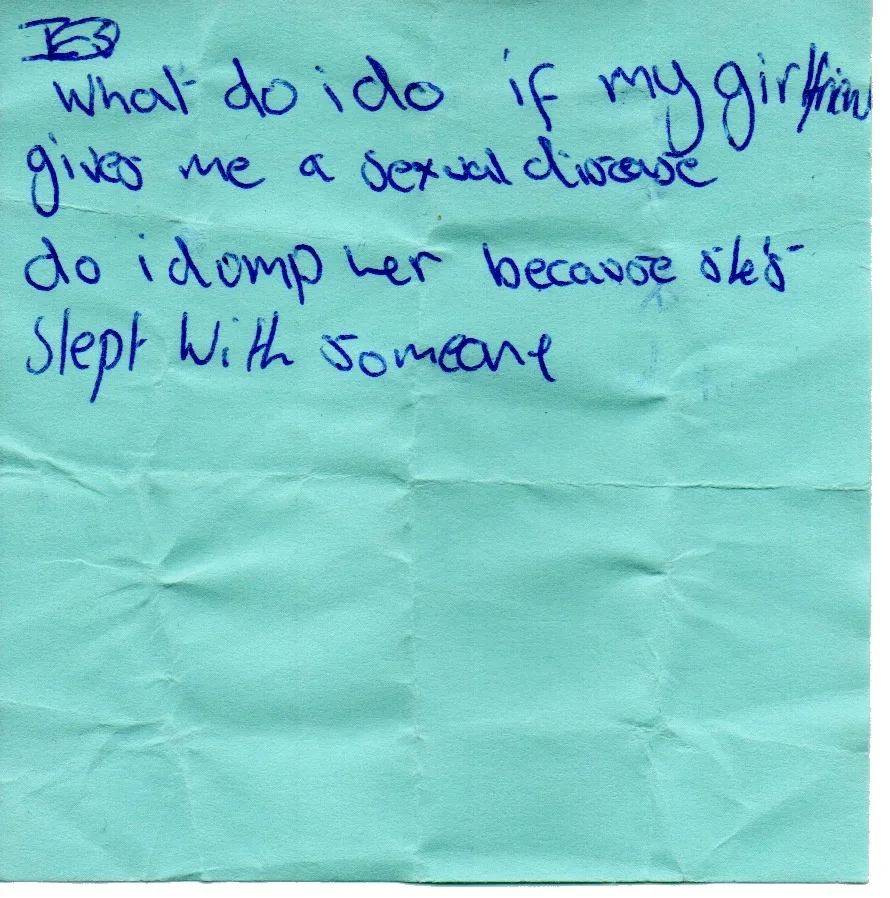 What do i do if my girlfrien
gives me a sexual disease
do i domp her because she's
slept with someone